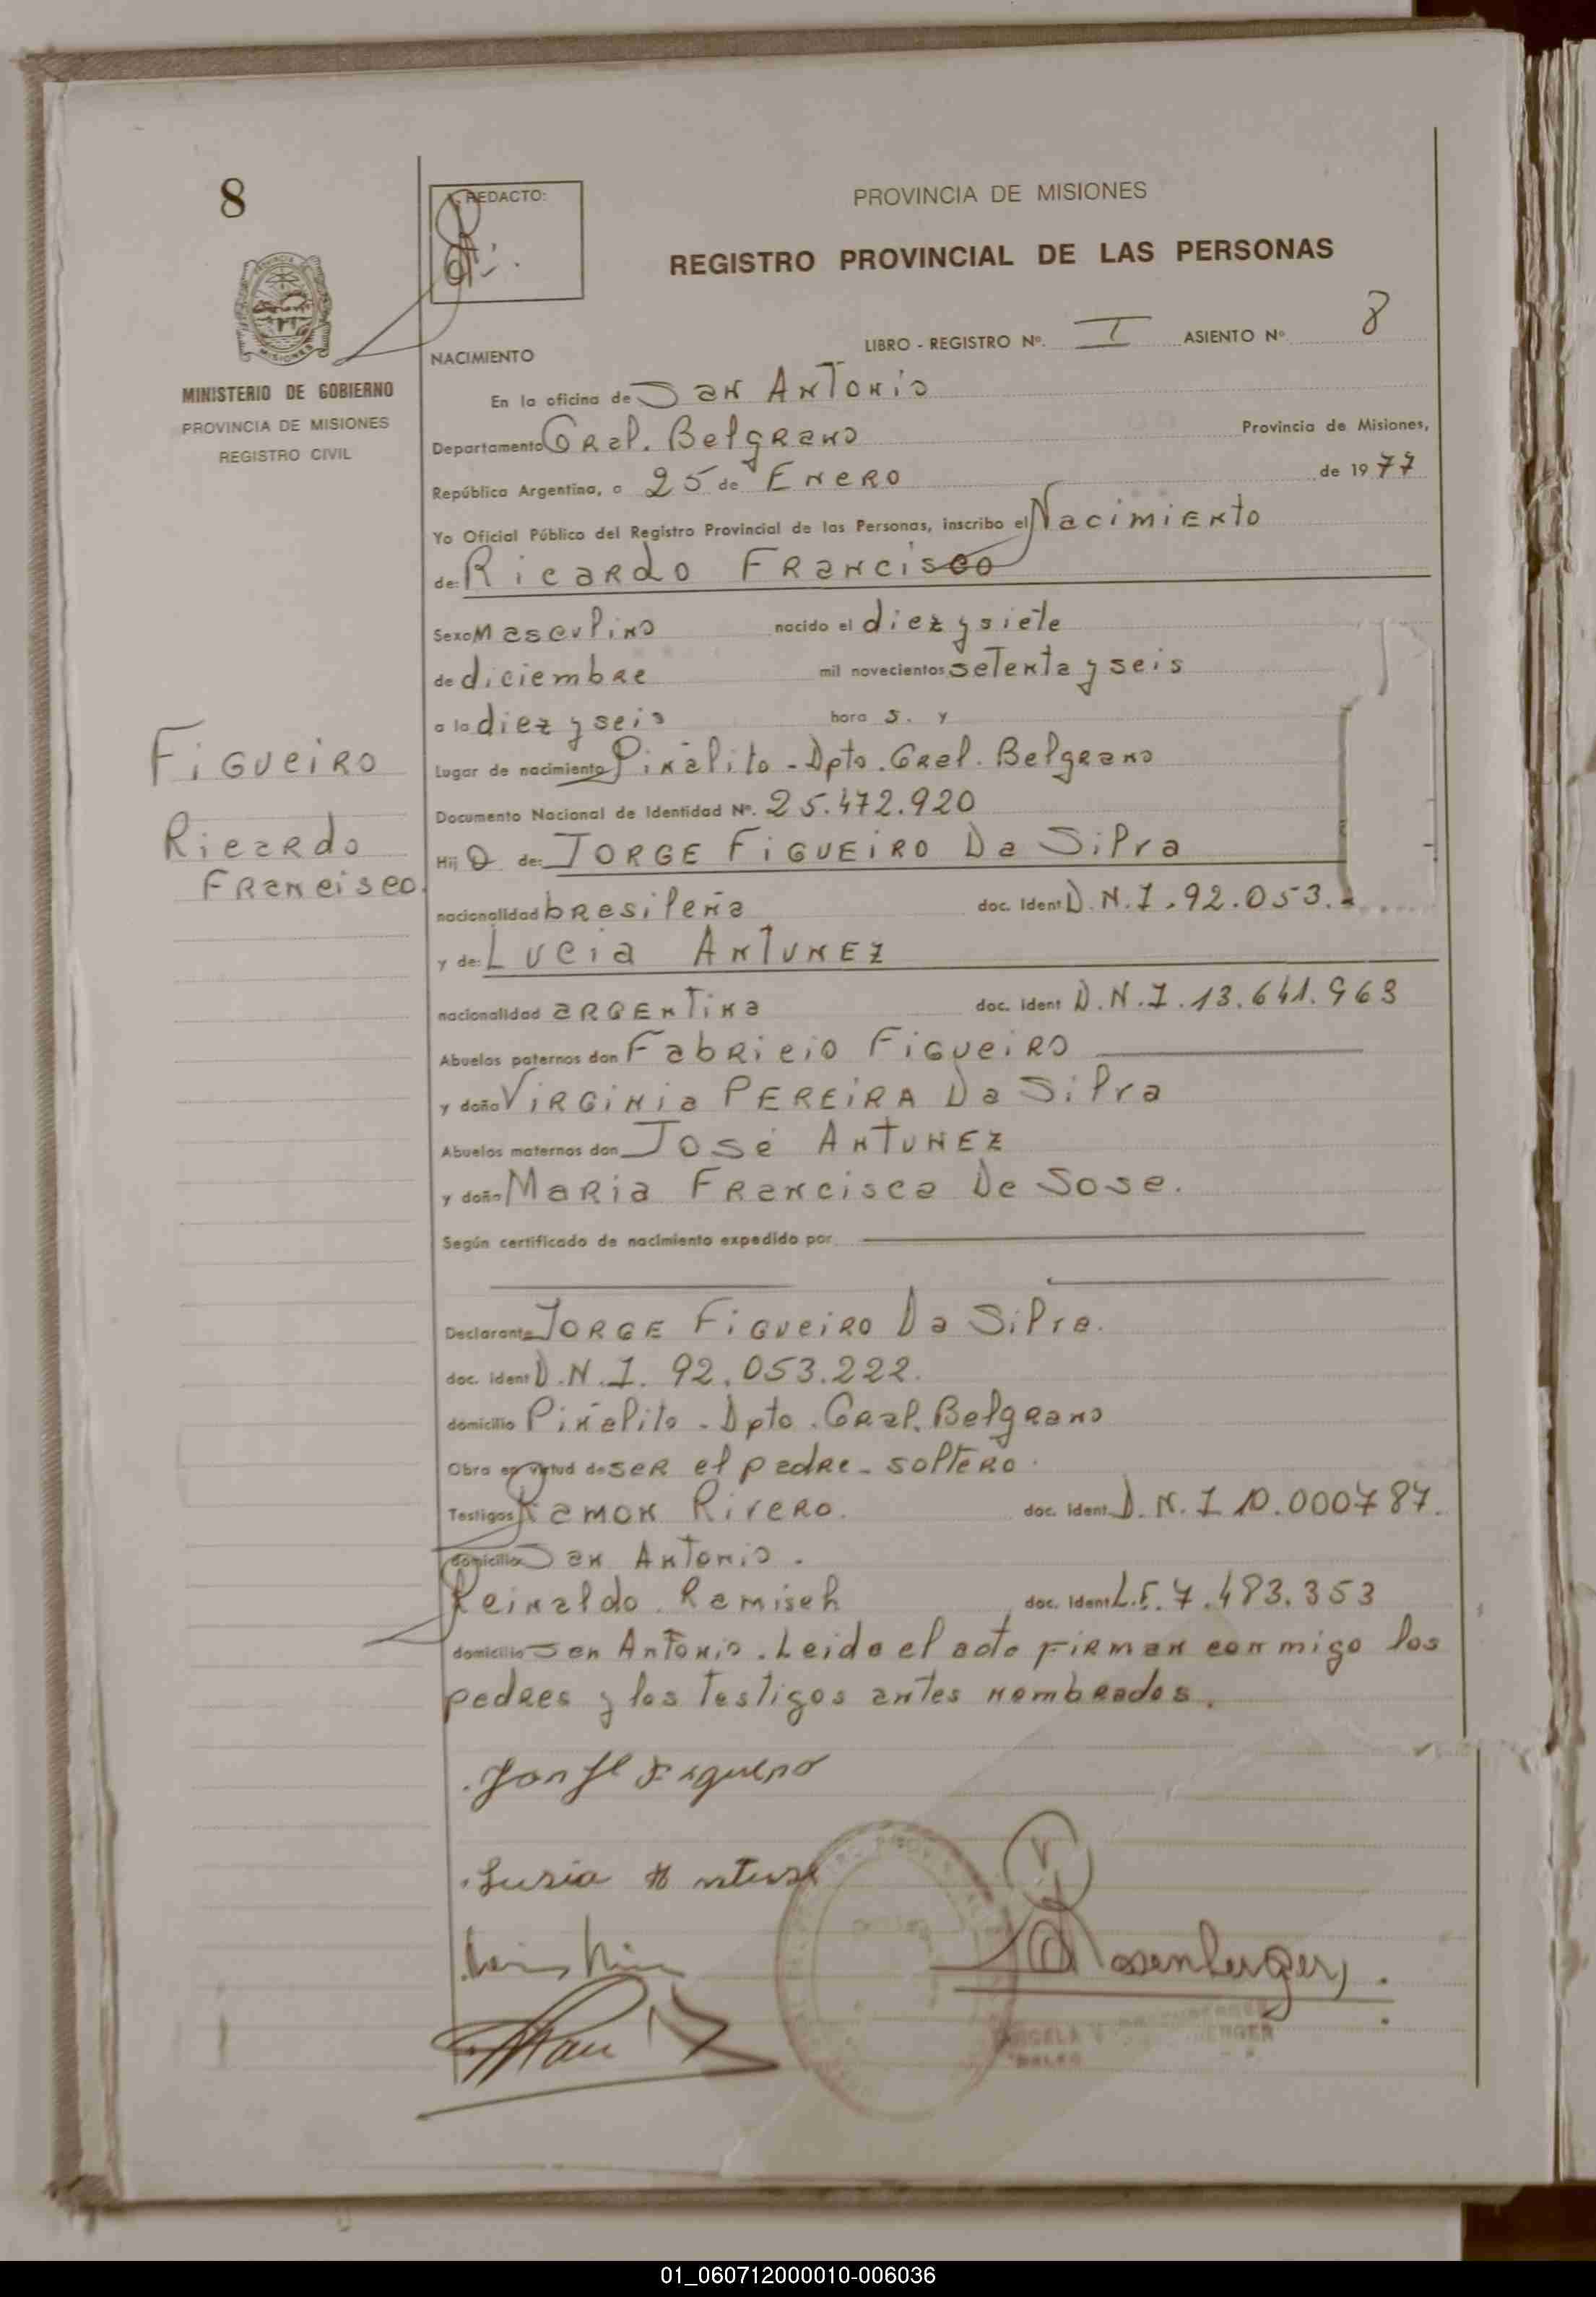 8
REDACTO:
PROVINCIA DE MISIONES
REGISTRO PROVINCIAL DE LAS PERSONAS
LIBRO - REGISTRO Nº. I ASIENTO Nº 8
NACIMIENTO
MINISTERIO DE GOBIERNO
PROVINCIA DE MISIONES
REGISTRO CIVIL
En la oficina de San Antonio
Departamento Gral. Belgrano Provincia de Misiones,
República Argentina, a 25 de Enero de 1977
Yo Oficial Público del Registro Provincial de las Personas, inscribo el Nacimiento
de: Ricardo Francisco
Sexo Masculino nacido el diez y siete
de diciembre mil novecientos setenta y seis
a la diez y seis hora s. y
Figueiro
Ricardo
Francisco.
Lugar de nacimiento Piñalito - Dpto. Gral. Belgrano
Documento Nacional de Identidad Nº. 25.472.920
Hij o de: JORGE FIGUEIRO Da Silva
nacionalidad brasileña doc. Ident D.N.I. 92.053.
y de: Lucia ANTUNEZ
nacionalidad argentina doc. Ident D.N.I. 13.641.963
Abuelos paternos don Fabricio Figueiro
y doña Virginia PEREIRA Da Silva
Abuelos maternos don José ANTUNEZ
y doña Maria Francisca De Sosa.
Según certificado de nacimiento expedido por
Declarante JORGE Figueiro Da Silva.
doc. Ident D.N.I. 92.053.222.
domicilio Piñalito - Dpto. Gral. Belgrano
Obra en virtud de ser el padre - soltero.
Testigos Ramon Rivero. doc. Ident. D.N.I 10.000787.
domicilio San Antonio.
Reinaldo Ramisch doc. Ident L.E. 7.483.353
domicilio San Antonio. Leida el acta firman conmigo los
padres y los testigos antes nombrados.
Rosenberger
01_060712000010-006036